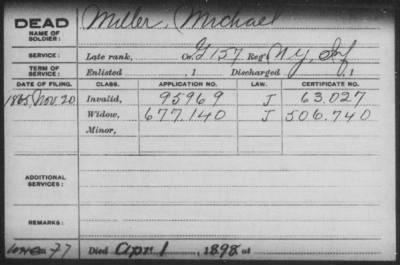 DEAD
NAME OF SOLDIER:
Miller, Michael
SERVICE: Late rank, Co. G 157 Reg't N.Y. Inf
TERM OF SERVICE: Enlisted , 1 Discharged , 1
DATE OF FILING. CLASS. APPLICATION NO. LAW. CERTIFICATE NO.
1865, Nov. 20 Invalid, 95969 J 63.027
Widow, 677.140 J 506.740
Minor,
ADDITIONAL SERVICES:
REMARKS:
77 Died Apr 1, 1898 at